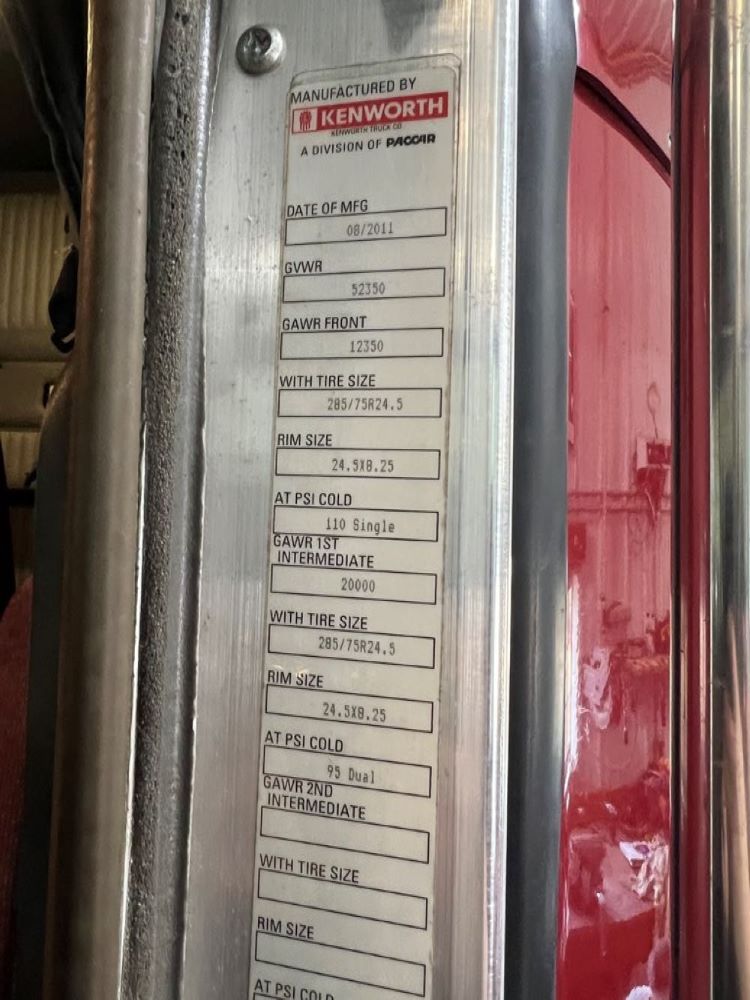 MANUFACTURED BY
KENWORTH
KENWORTH TRUCK CO
A DIVISION OF PACCAR
DATE OF MFG
08/2011
GVWR
52350
GAWR FRONT
12350
WITH TIRE SIZE
285/75R24.5
RIM SIZE
24.5X8.25
AT PSI COLD
110 Single
GAWR 1ST
INTERMEDIATE
20000
WITH TIRE SIZE
285/75R24.5
RIM SIZE
24.5X8.25
AT PSI COLD
95 Dual
GAWR 2ND
INTERMEDIATE
WITH TIRE SIZE
RIM SIZE
AT PSI COLD